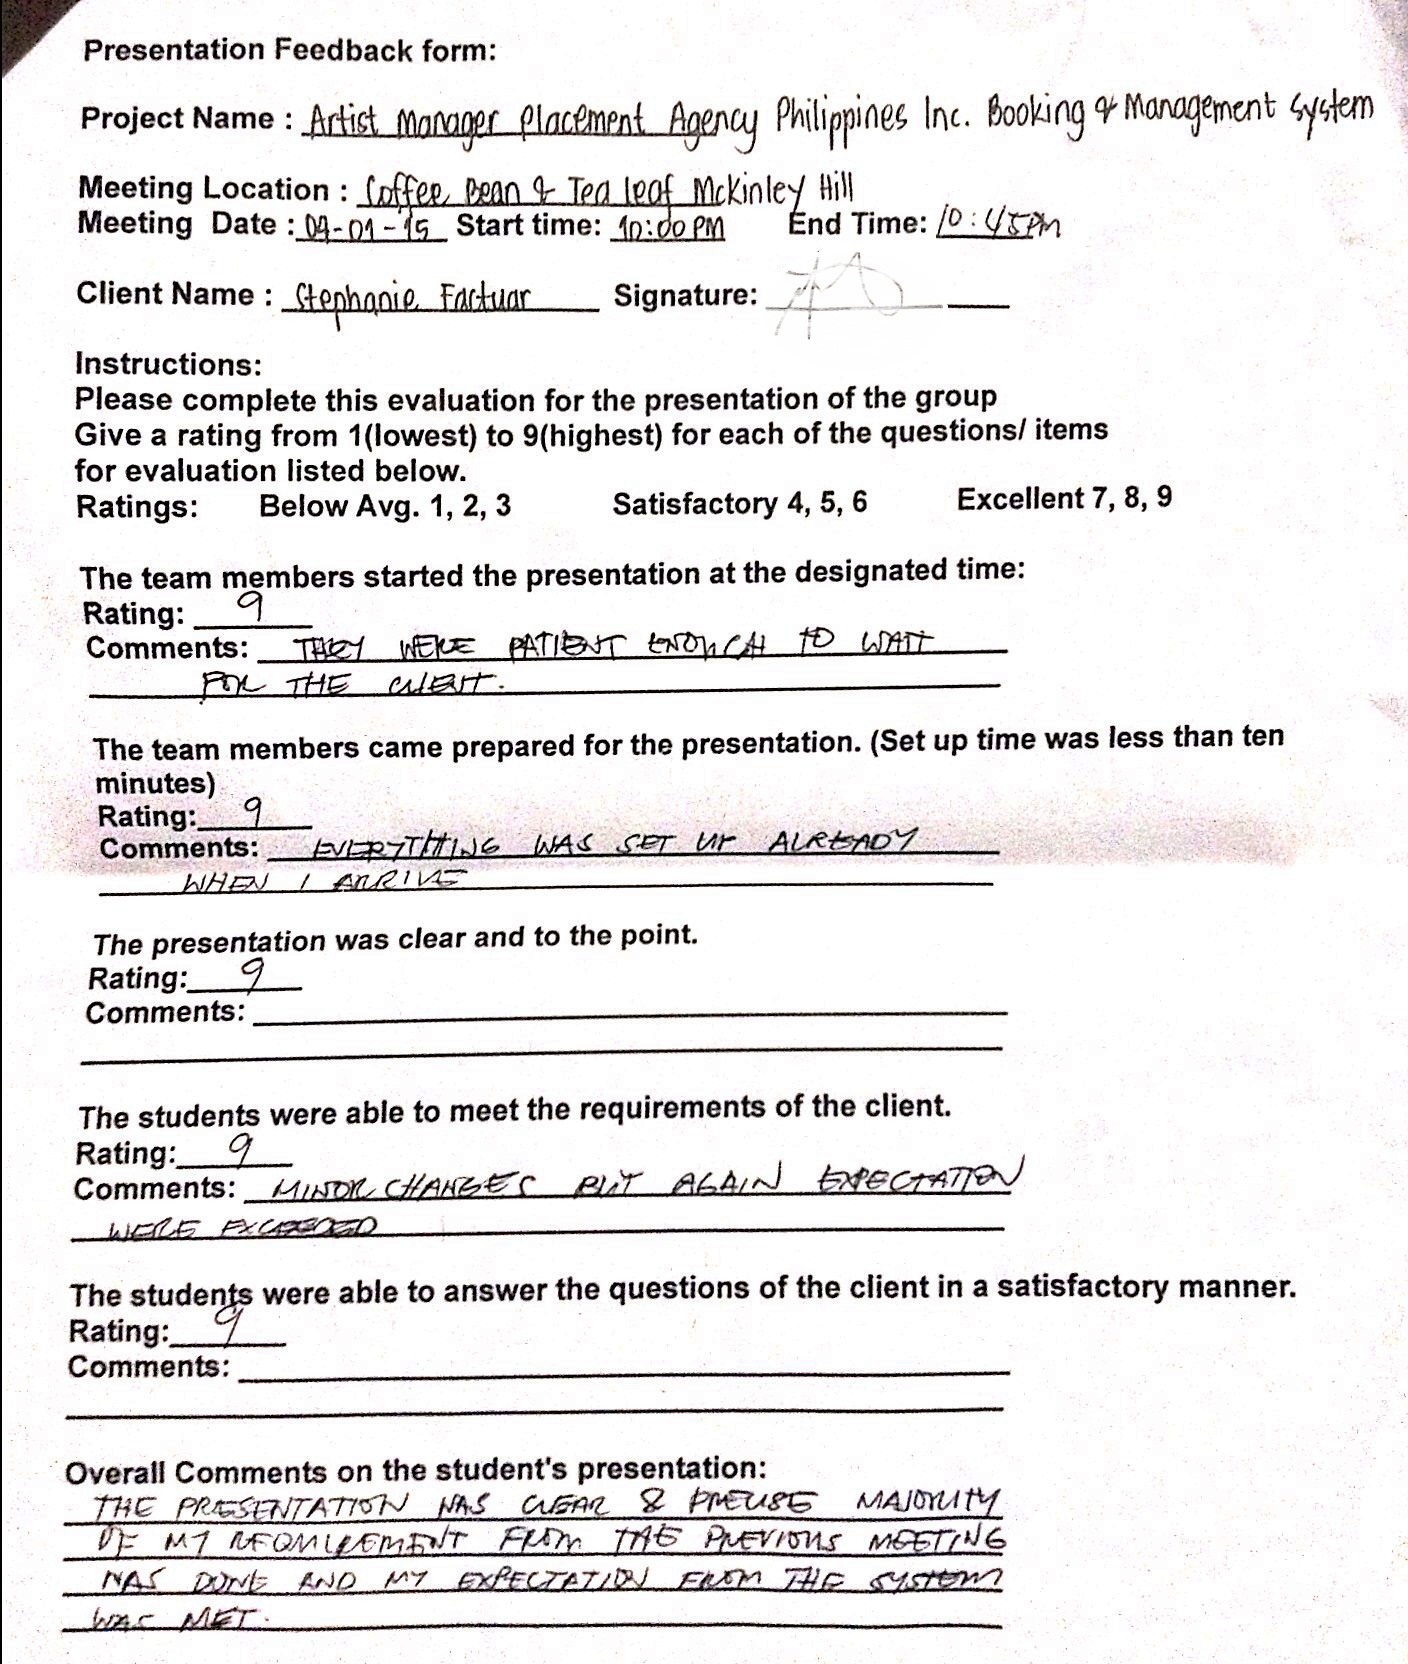 Presentation Feedback form:
Project Name : Artist Manager Placement Agency Philippines Inc. Booking & Management System
Meeting Location : Coffee Bean & Tea leaf McKinley Hill
Meeting Date : 09-01-15 Start time: 10:00 PM End Time: 10:45PM
Client Name : Stephanie Factuar Signature:
Instructions:
Please complete this evaluation for the presentation of the group
Give a rating from 1(lowest) to 9(highest) for each of the questions/ items
for evaluation listed below.
Ratings: Below Avg. 1, 2, 3 Satisfactory 4, 5, 6 Excellent 7, 8, 9
The team members started the presentation at the designated time:
Rating: 9
Comments: THEY WERE PATIENT ENOUGH TO WAIT
FOR THE CLIENT.
The team members came prepared for the presentation. (Set up time was less than ten
minutes)
Rating: 9
Comments: EVERYTHING WAS SET UP ALREADY
WHEN I ARRIVE
The presentation was clear and to the point.
Rating: 9
Comments:
The students were able to meet the requirements of the client.
Rating: 9
Comments: MINOR CHANGES BUT AGAIN EXPECTATION
WERE EXCEEDED
The students were able to answer the questions of the client in a satisfactory manner.
Rating: 9
Comments:
Overall Comments on the student's presentation:
THE PRESENTATION WAS CLEAR & PRECISE MAJORITY
OF MY REQUIREMENT FROM THE PREVIOUS MEETING
WAS DONE AND MY EXPECTATION FROM THE SYSTEM
WAS MET.